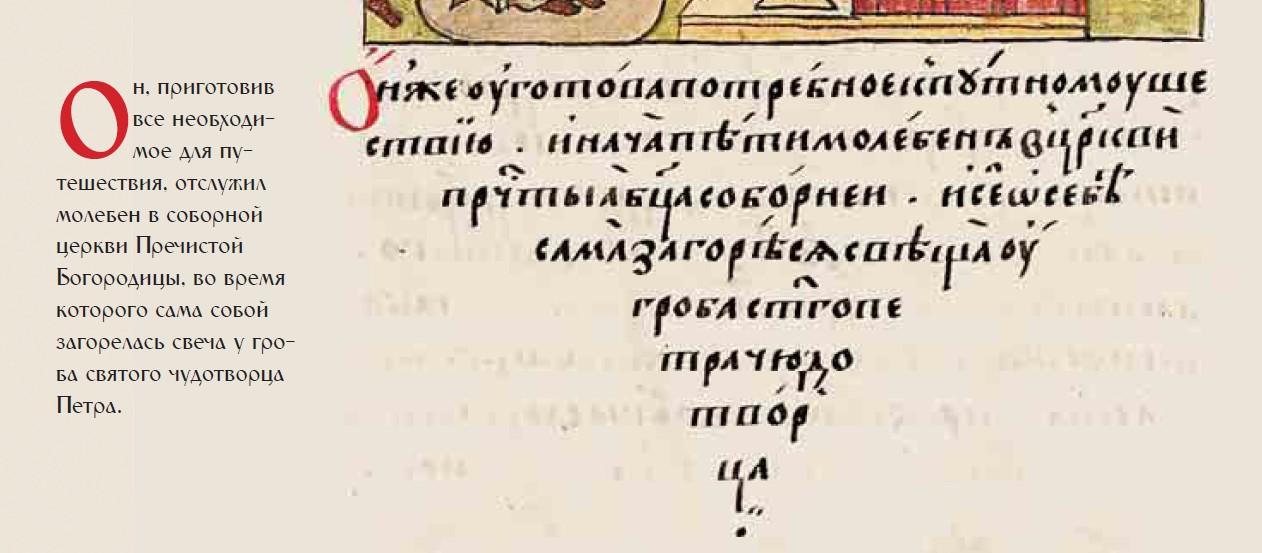 Он, приготовив
все необходи-
мое для пу-
тешествия, отслужил
молебен в соборной
церкви Пречистой
Богородицы, во время
которого сама собой
загорелась свеча у гро-
ба святого чудотворца
Петра.
Ѻнже оуготова потребное к пꙋтномоу ше
ствїю . и нача пѣти молебенъ в цр҃кви
прⷱ҇тыѧ бц҃а соборнеи . и се ѡ себѣ
сама загорѣсѧ свѣща оу
гроба ст҃го пе
тра чюдо
твор
ца